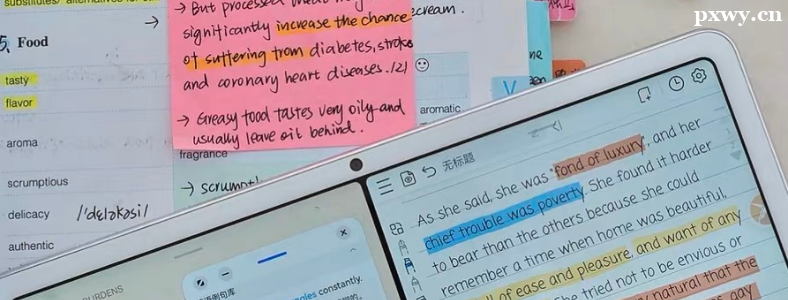 substitutes/ alternatives for
5、Food
tasty
flavor
aroma
scrumptious
delicacy /'dɛləkəsi/
authentic
→ But processed meat
significantly increase the chance
of suffering from diabetes, stroke
and coronary heart diseases. /21
→ Greasy food tastes very oily and
usually leave oil behind.
fragrance
→ scrumpt
aromatic
pxwy.cn
无标题
As she said, she was fond of luxury, and her
chief trouble was poverty. She found it harder
to bear than the others because she could
remember a time when home was beautiful,
of ease and pleasure, and want of any
She tried not to be envious or
natural that the
gay
BURDENS
constantly.